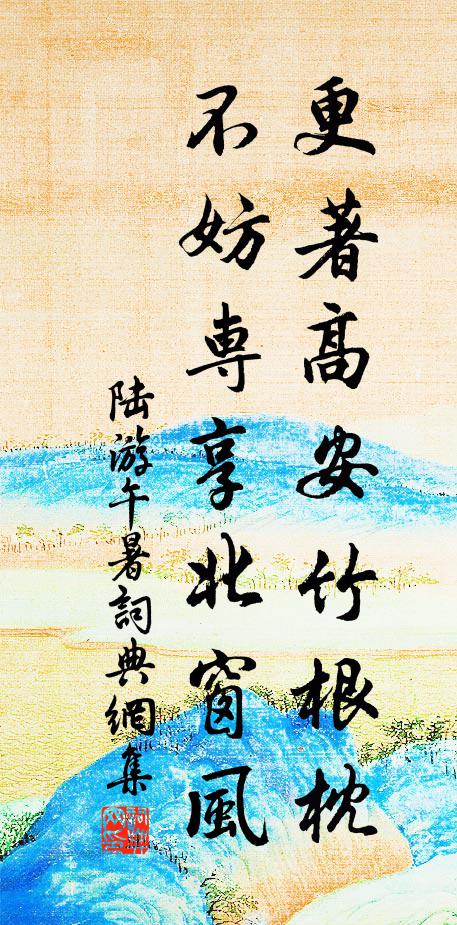 更著高安竹根枕
不妨専享北窗風
陆游午暑詞典網集